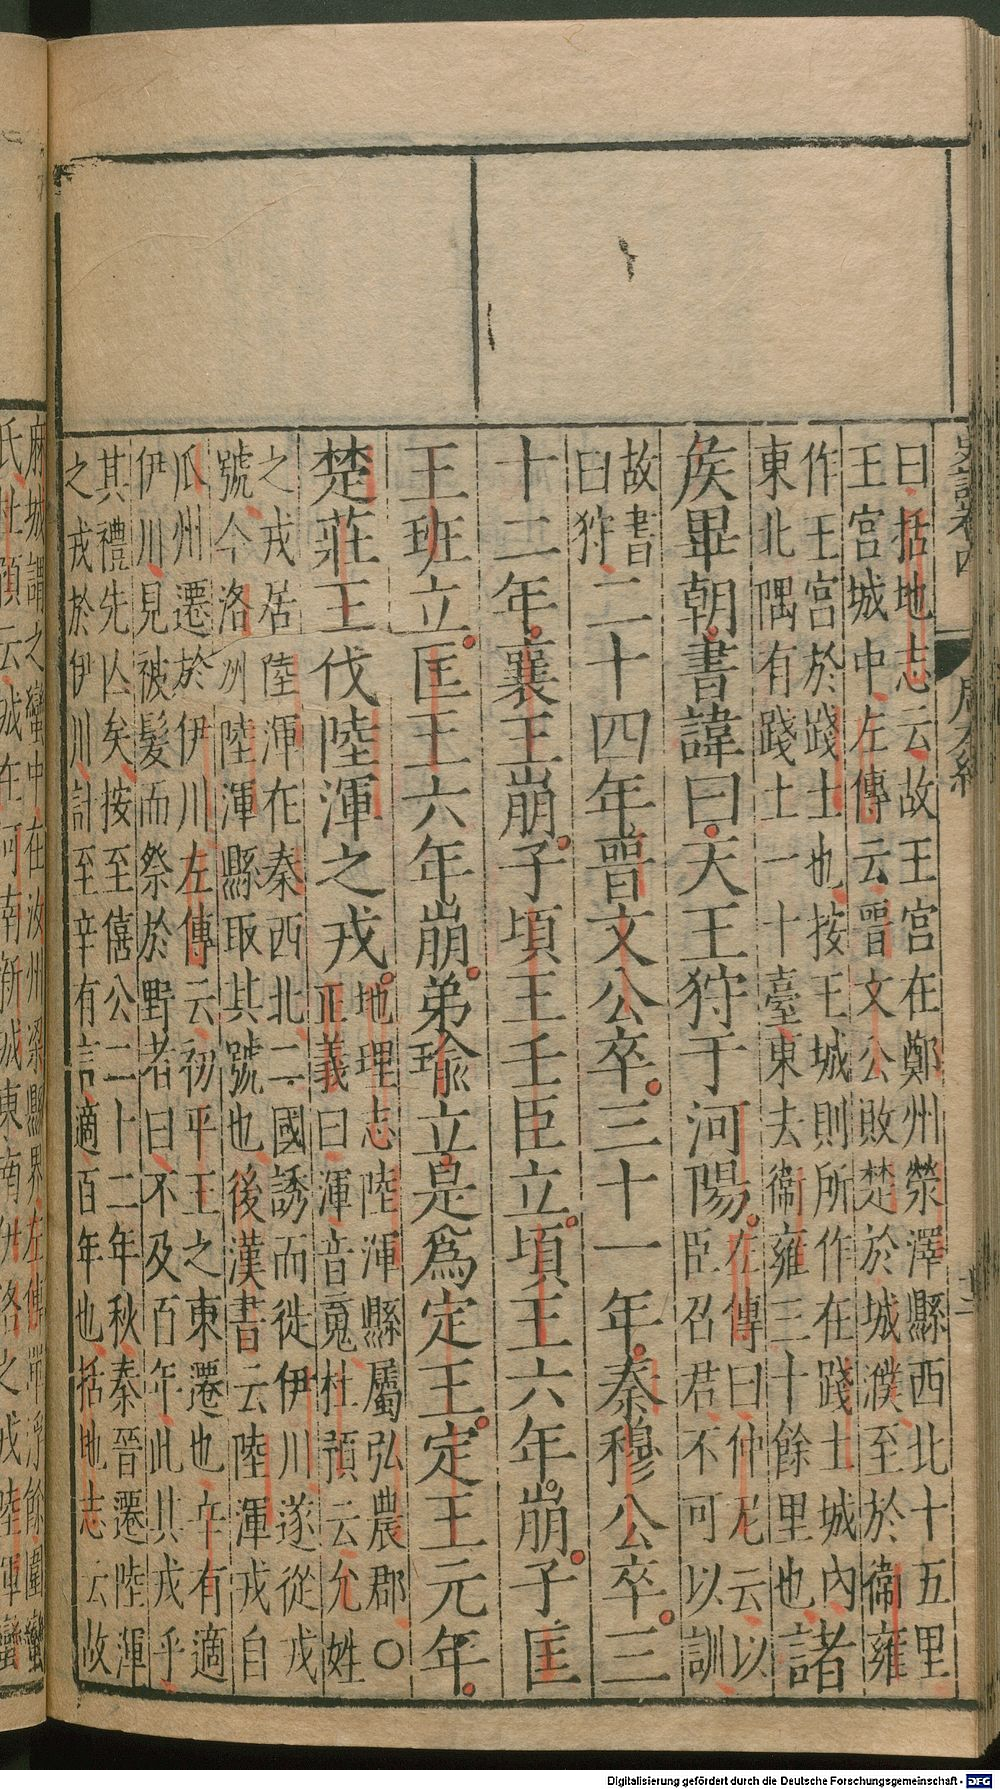 曰括地志云故王宮在鄭州滎澤縣西北十五里
王宮城中左傳云晉文公敗楚於城濮至於衡雍
作王宮於踐土也按王城則所作在踐土城內
東北隅有踐土一十臺東去衡雍三十餘里也諸
矦畢朝書諱曰天王狩于河陽左傳曰仲尼云以
臣召君不可以訓
故書
曰狩二十四年晉文公卒三十一年秦穆公卒三
十二年襄王崩子頃王壬臣立頃王六年崩子匡
王班立匡王六年崩弟瑜立是爲定王定王元年
楚莊王伐陸渾之戎地理志陸渾縣屬弘農郡〇
正義曰渾音䰟杜預云允姓
之戎居陸渾在秦西北二國誘而徙伊川遂從戎
號今洛州陸渾縣取其號也後漢書云陸渾戎自
瓜州遷於伊川左傳云初平王之東遷也辛有適
伊川見被髮而祭於野者曰不及百年此其戎乎
其禮先亾矣按至僖公二十二年秋秦晉遷陸渾
之戎於伊川計至辛有言適百年也括地志云故
麻城謂之蠻中在汝州梁縣界左傳
氏杜預云城在河南新城東南伊洛之戎陸渾蠻
Digitalisierung gefördert durch die Deutsche Forschungsgemeinschaft - DFG